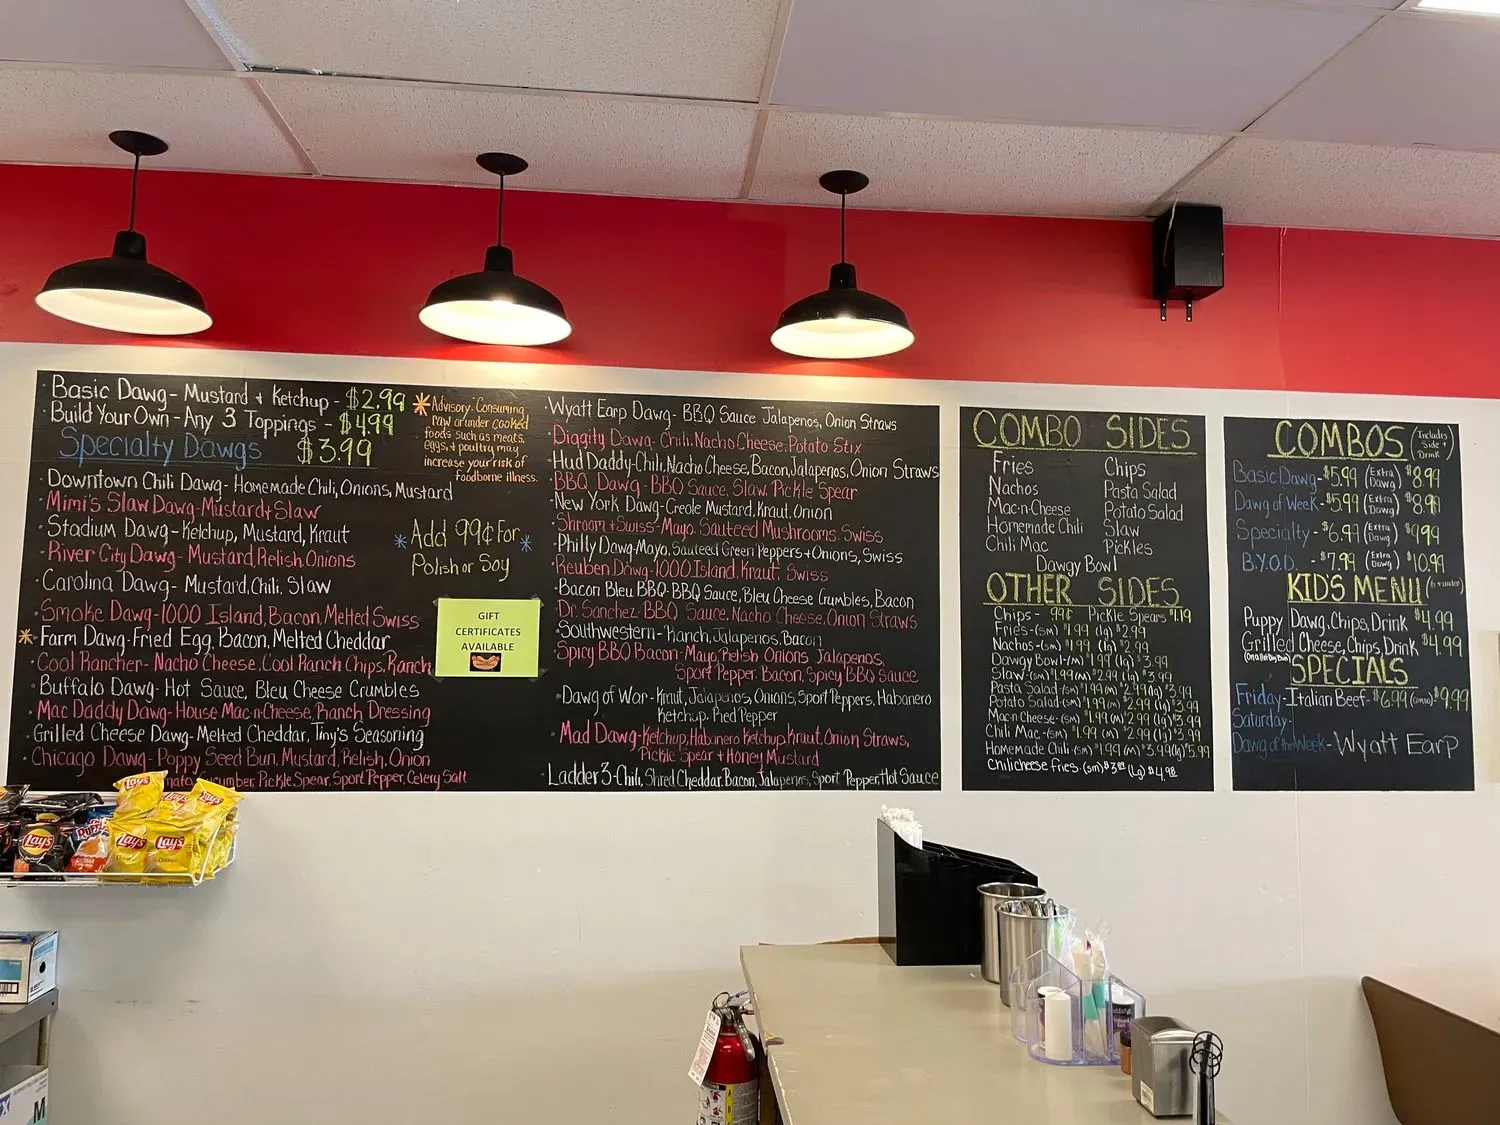 Basic Dawg - Mustard + Ketchup - $2.99
Build Your Own - Any 3 Toppings - $4.99
Specialty Dawgs $3.99
Downtown Chili Dawg - Homemade Chili, Onions, Mustard
Mimi's Slaw Dawg - Mustard + Slaw
Stadium Dawg - Ketchup, Mustard, Kraut
River City Dawg - Mustard, Relish, Onions
Carolina Dawg - Mustard, Chili, Slaw
Smoke Dawg - 1000 Island, Bacon, Melted Swiss
Farm Dawg - Fried Egg, Bacon, Melted Cheddar
Cool Rancher - Nacho Cheese, Cool Ranch Chips, Ranch
Buffalo Dawg - Hot Sauce, Bleu Cheese Crumbles
Mac Daddy Dawg - House Mac-n-Cheese, Ranch Dressing
Grilled Cheese Dawg - Melted Cheddar, Tiny's Seasoning
Chicago Dawg - Poppy Seed Bun, Mustard, Relish, Onion
Pickle Spear, Sport Pepper, Celery Salt
Advisory: Consuming
raw or under cooked
foods such as meats,
eggs, + poultry may
increase your risk of
foodborne illness.
Add 99¢ For
Polish or Soy
GIFT
CERTIFICATES
AVAILABLE
Wyatt Earp Dawg - BBQ Sauce, Jalapenos, Onion Straws
Diggity Dawg - Chili, Nacho Cheese, Potato Stix
Hud Daddy - Chili, Nacho Cheese, Bacon, Jalapenos, Onion Straws
BBQ Dawg - BBQ Sauce, Slaw, Pickle Spear
New York Dawg - Creole Mustard, Kraut, Onion
Shroom + Swiss - Mayo, Sauteed Mushrooms, Swiss
Philly Dawg - Mayo, Sauteed Green Peppers + Onions, Swiss
Reuben Dawg - 1000 Island, Kraut, Swiss
Bacon Bleu BBQ - BBQ Sauce, Bleu Cheese Crumbles, Bacon
Dr. Sanchez - BBQ Sauce, Nacho Cheese, Onion Straws
Southwestern - Ranch, Jalapenos, Bacon
Spicy BBQ Bacon - Mayo, Relish, Onions, Jalapenos,
Sport Pepper, Bacon, Spicy BBQ Sauce
Dawg of War - Kraut, Jalapenos, Onions, Sport Peppers, Habanero
Ketchup, Red Pepper
Mad Dawg - Ketchup, Habanero Ketchup, Kraut, Onion Straws,
Pickle Spear + Honey Mustard
Ladder 3 - Chili, Shred Cheddar, Bacon, Jalapenos, Sport Pepper, Hot Sauce
COMBO SIDES
Fries Chips
Nachos Pasta Salad
Mac-n-Cheese Potato Salad
Homemade Chili Slaw
Chili Mac Pickles
Dawgy Bowl
OTHER SIDES
Chips - 99¢ Pickle Spears $1.19
Fries - (sm) $1.99 (lg) $2.99
Nachos - (sm) $1.99 (lg) $2.99
Dawgy Bowl - (m) $1.99 (lg) $3.99
Slaw - (sm) $1.99 (m) $2.99 (lg) $3.99
Pasta Salad - (sm) $1.99 (m) $2.99 (lg) $3.99
Potato Salad - (sm) $1.99 (m) $2.99 (lg) $3.99
Mac-n-Cheese - (sm) $1.99 (m) $2.99 (lg) $3.99
Chili Mac - (sm) $1.99 (m) $2.99 (lg) $3.99
Homemade Chili - (sm) $1.99 (m) $3.99 (lg) $5.99
Chili cheese fries - (sm) $3.99 (Lg) $4.98
COMBOS (Includes Side + Drink)
Basic Dawg - $5.99 (Extra Dawg) $8.99
Dawg of Week - $5.99 (Extra Dawg) $8.99
Specialty - $6.99 (Extra Dawg) $9.99
B.Y.O.D. - $7.99 (Extra Dawg) $10.99
KID'S MENU (6 + under)
Puppy Dawg, Chips, Drink $4.99
Grilled Cheese, Chips, Drink $4.99
SPECIALS
Friday - Italian Beef - $6.99 (Combo) $9.99
Saturday -
Dawg of the Week - Wyatt Earp
Lay's
Lay's
Lay's
Lay's
Classic
M